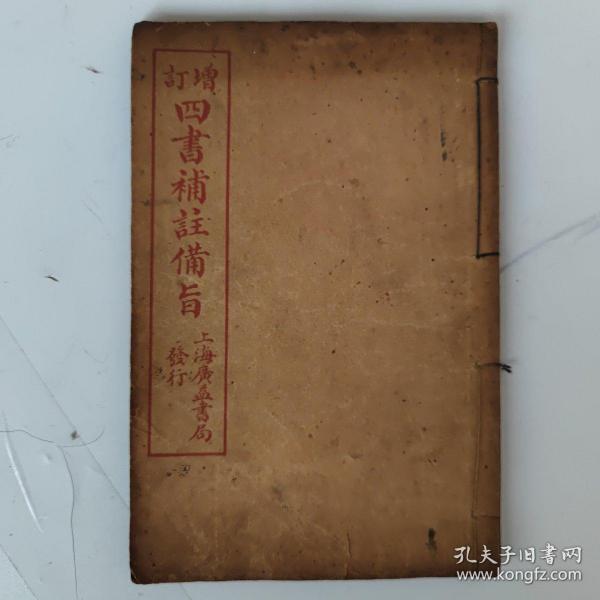 增訂
四書補註備旨
上海廣益書局
發行
孔夫子旧书网
www.kongfz.com